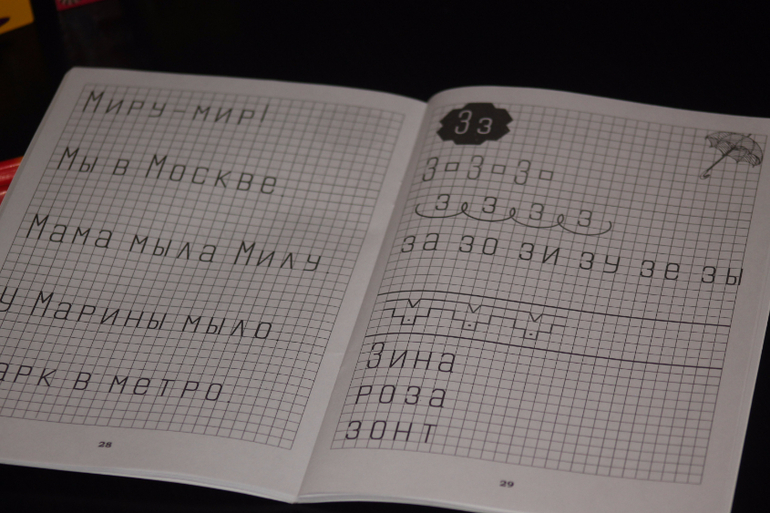 Миру-мир!
Мы в Москве
Мама мыла Милу.
У Марины мыло.
в метро.
28
Зз
З З З
з з з з
за зо зи зу зе зы
Зина
роза
зонт
29